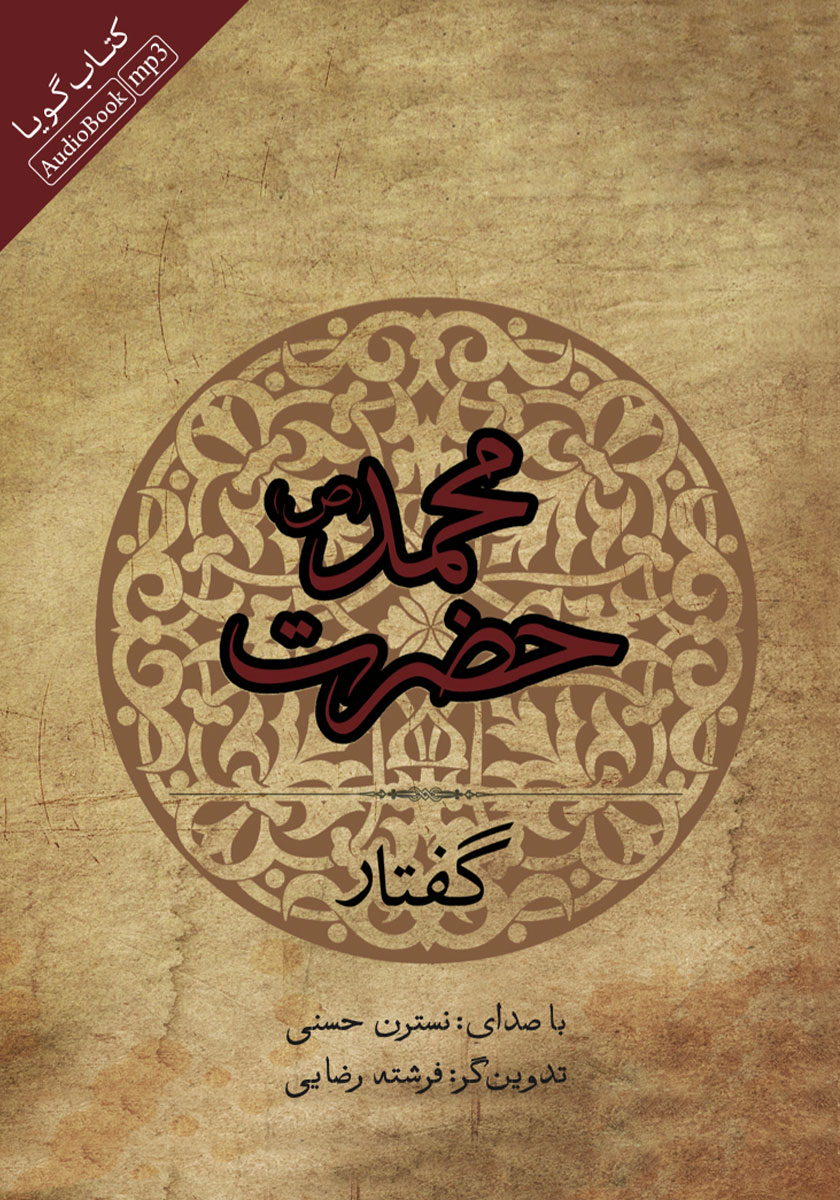 کتاب گویا
AudioBook mp3
محمد (ص)
حضرت
گفتار
با صدای: نسترن حسنی
تدوین‌گر: فرشته رضایی